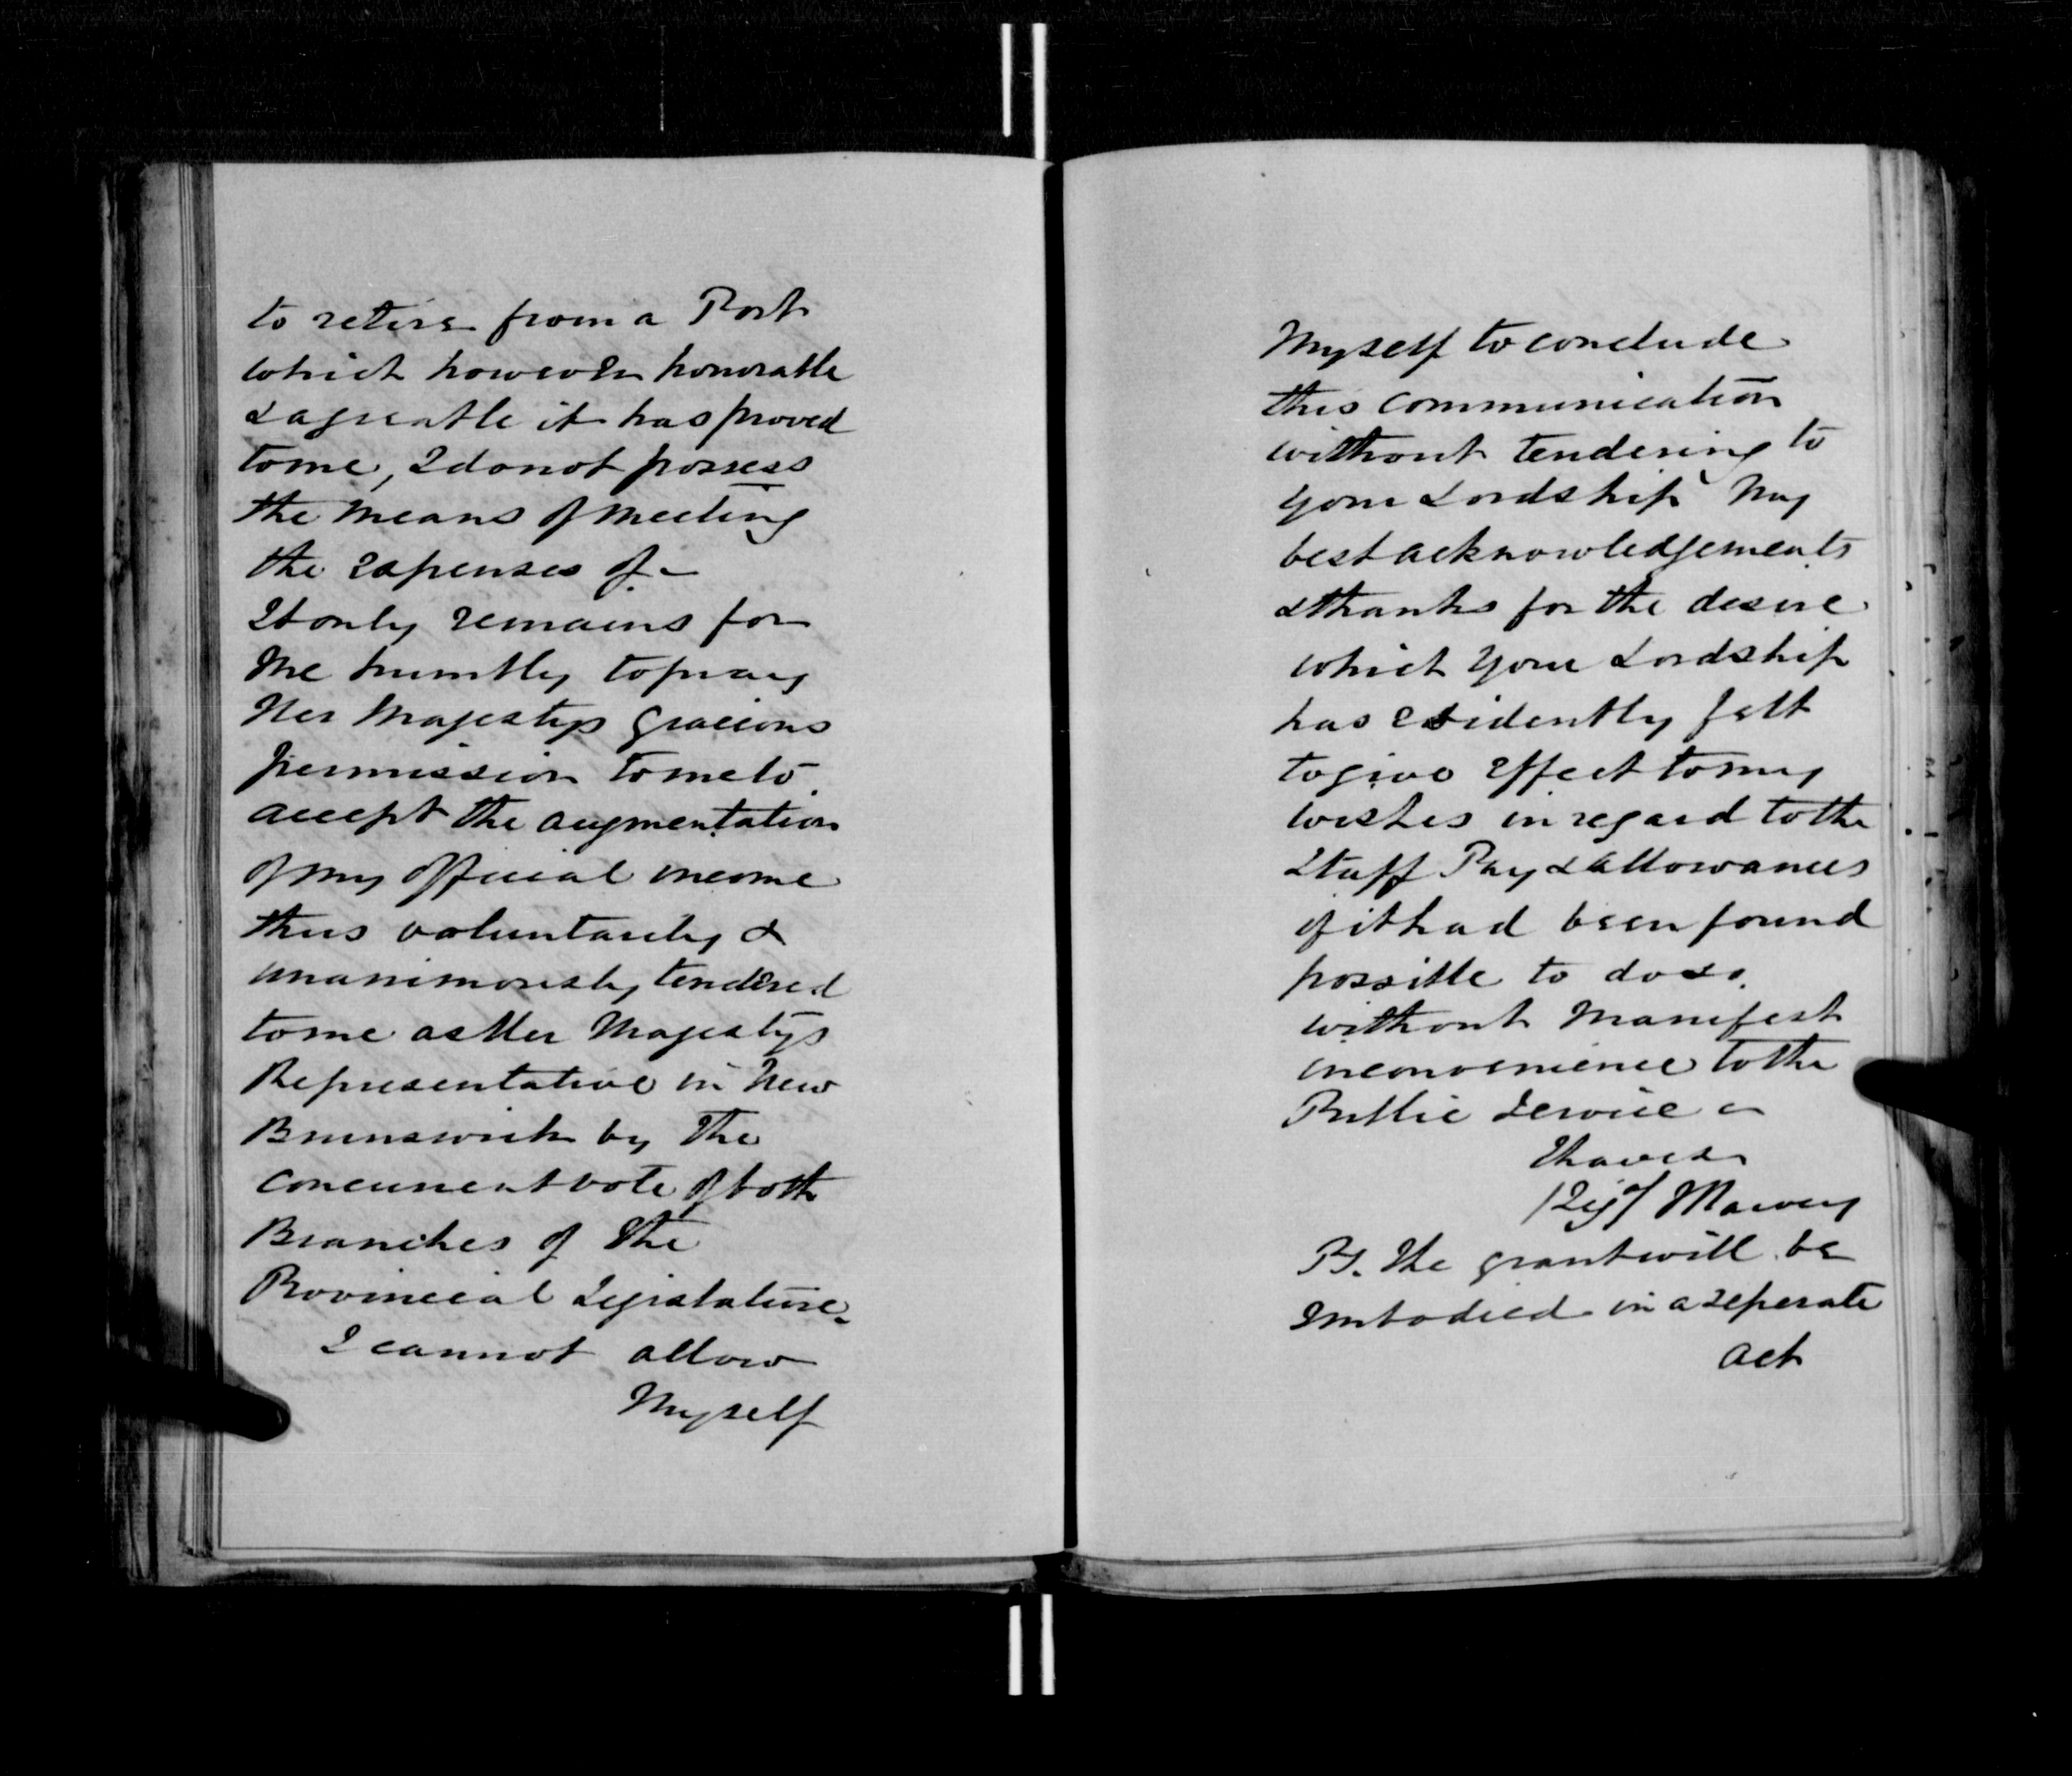 to retire from a Post
which however honorable
& agreable it has proved
to me, I do not possess
the means of meeting
the expenses of –
It only remains for
me humbly to pray
Her Majestys gracious
permission to me to
accept the augmentation
of my official income
thus voluntarily &
unanimously tendered
to me as Her Majestys
Representative in New
Brunswick by the
concurrent vote of both
Branches of the
Provincial Legislature.
I cannot allow
Myself
Myself to conclude
this communication
without tendering to
your Lordship my
best acknowledgements
& thanks for the desire
which your Lordship
has evidently felt
to give effect to my
wishes in regard to the
Staff Pay & Allowances
if it had been found
possible to do so.
without manifest
inconvenience to the
Public Service –
I have &
/Sigd/ J Harvey
PS. The grant will be
Imbodied in a seperate
Act